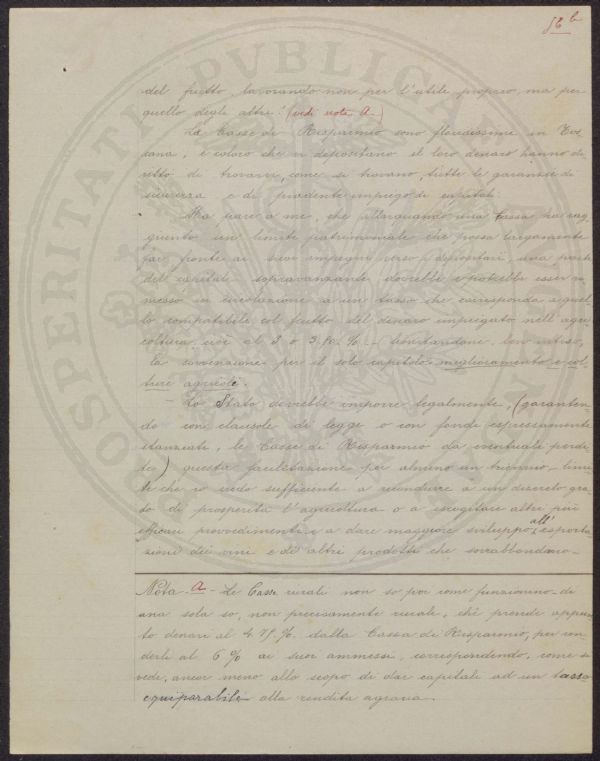 56 b
del frutto, lavorando non per l'utile proprio, ma per
quello degli altri! (vedi nota A.)
Le Casse di Risparmio sono floridissime in Tos-
cana, e coloro che vi depositano il loro denaro hanno di-
ritto di trovarvi, come vi trovano, tutte le garanzie di
sicurezza e di prudente impiego di capitali.
Ma pare a me, che allorquando una Cassa ha rag-
giunto un limite patrimoniale che possa largamente
far fronte ai suoi impegni verso i depositari, una parte
del capitale sopravanzante dovrebbe e potrebbe esser ri-
messo in circolazione a un tasso che corrisponda a quel-
lo compatibile col frutto del denaro impiegato nell'agri-
coltura, cioè al 3 o 3,50 % limitandone, ben inteso,
la sovvenzione per il solo capitolo miglioramento e col-
ture agricole.
Lo Stato dovrebbe imporre legalmente, (garanten-
do con clausole di legge o con fondi espressamente
stanziati, le Casse di Risparmio da eventuali perdi-
te) questa facilitazione per almeno un triennio, limi-
te che io credo sufficiente a ricondurre a un discreto gra-
do di prosperità l'agricoltura o a escogitare altri più
efficaci provvedimenti e a dare maggiore sviluppo all'esporta-
zione dei vini e di altri prodotti che sovrabbondano.
Nota - A - Le Casse rurali non so poi come funzionino - di
una sola so, non precisamente rurale, che prende appun-
to denari al 4.75 % dalla Cassa di Risparmio, per ren-
derli al 6 % ai suoi ammessi, corrispondendo, come si
vede, ancor meno allo scopo di dar capitali ad un tasso
equiparabile alla rendita agraria.
PROSPERITATI PUBLICAE